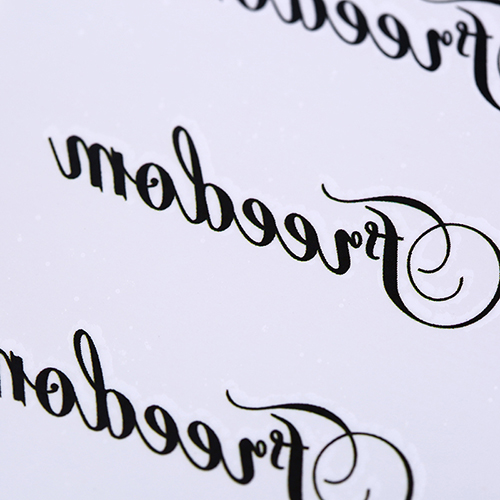 Freedom
Freedom
Freedom